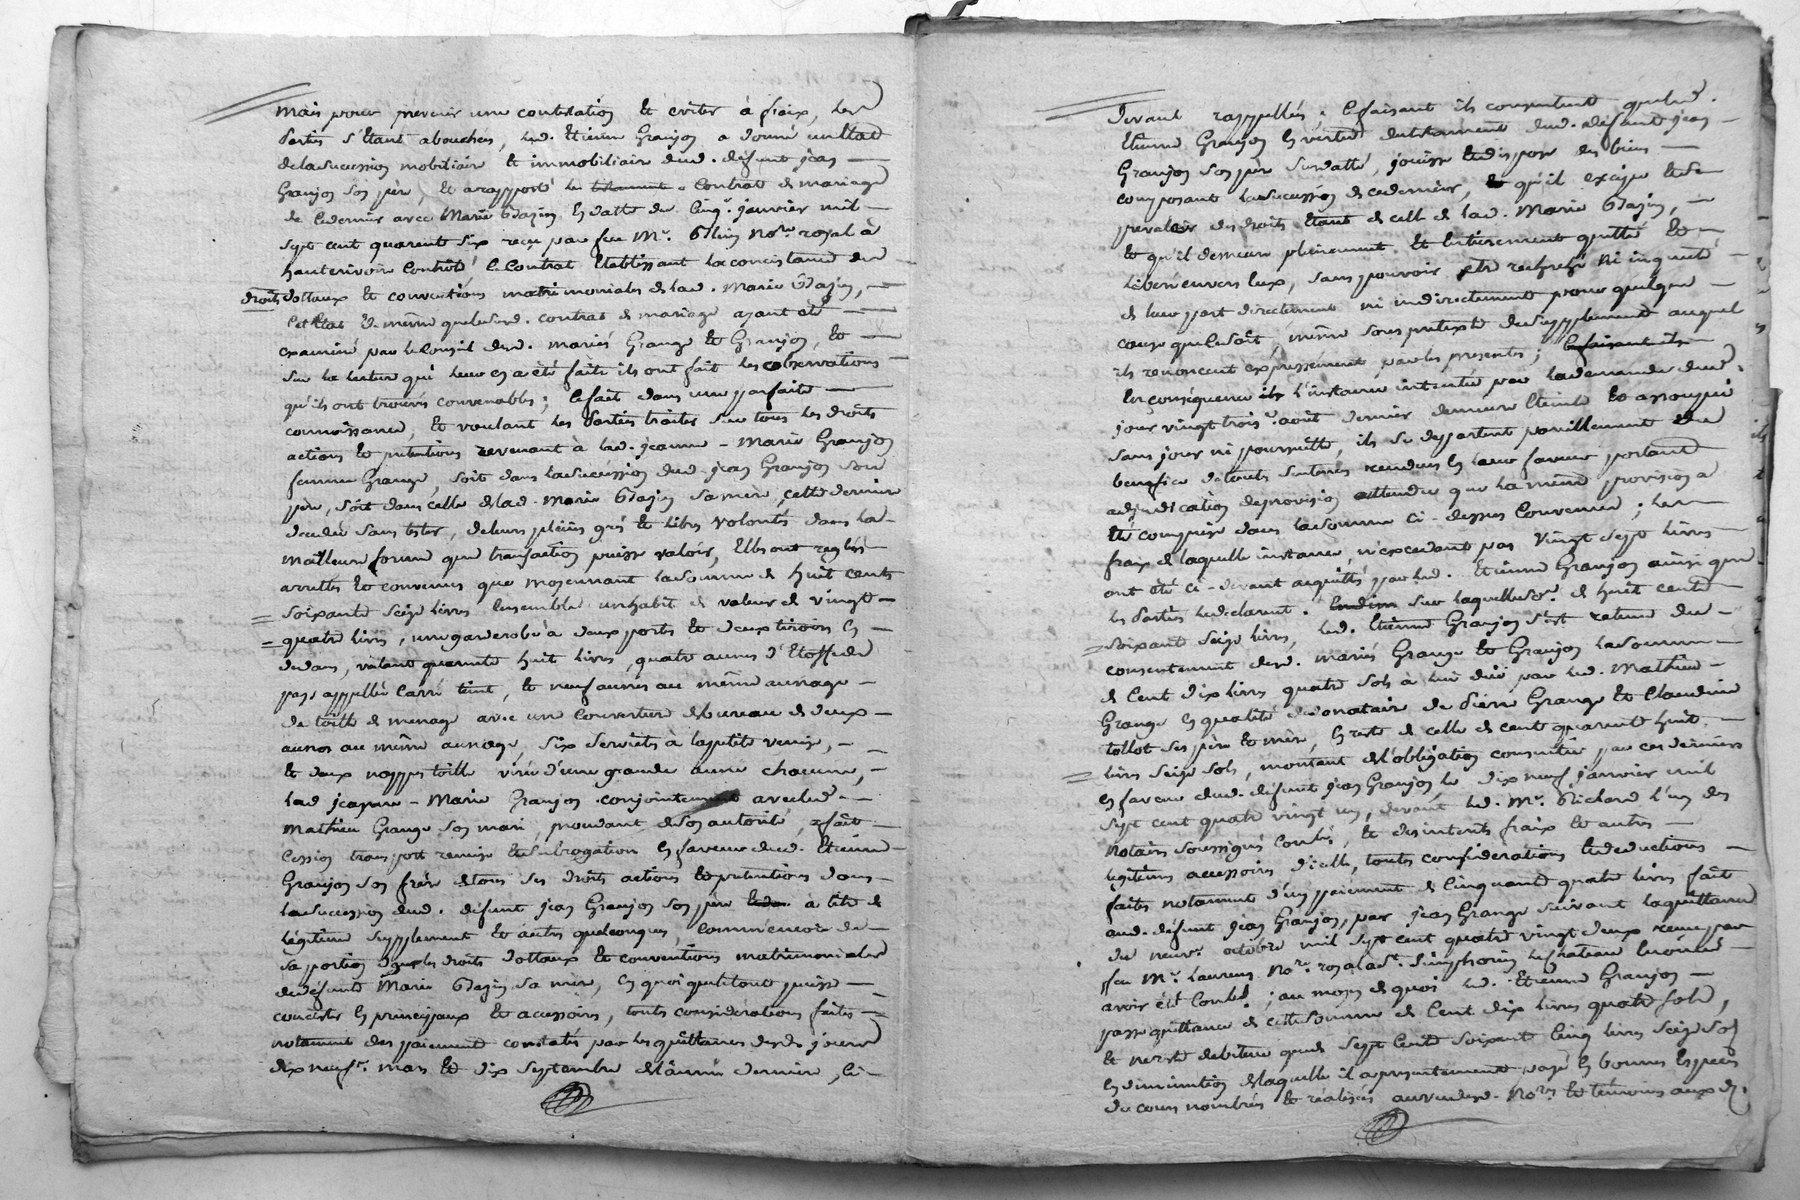 Mais pour prevenir une contestation et eviter à fraix, les
Parties s'Etant abouchées, led. Etienne Granjon a donné un Etat
de la succession mobiliaire et immobiliaire dud. défunt jean
Granjon son père, et a rapporté le contrat de mariage
de ce dernier avec Marie Bazin en datte du cinq.e janvier mil
sept cent quarente six reçu par feu Mr. Blein No.re royal à
hauterivoire Controlé ; le Contrat Etablissant la consistance des
droits dottaux et conventions matrimoniales de lad. Marie Bazin,
cet Etat de même que le susd. contrat de mariage ayant été
examiné par le Conseil desd. mariés Grange et Granjon, et
sur la lecture qui leur en a été faite ils ont fait les observations
qu'ils ont trouvés convenables ; ce fait dans une parfaite
connoissance, et voulant les Parties traiter sur tous les droits
actions et pretentions revenant à lad. jeanne - Marie Granjon
femme Grange, soit dans la succession dud. jean Granjon son
père, soit dans celle de lad. Marie Bazin sa mère, cette derniere
decedée sans tester, de leurs pleins grés et libres volontés dans la
meilleure forme que transaction puisse valoir, Elles ont reglés
arrettés et convenus que moyennant la somme de huit cents
soixante seize livres, Ensemble un habit de valeur de vingt
quatre livres, une garderobe à deux portes et deux tiroirs en
dedans, valant quarente huit livres, quatre aunes d'Etoffe du
pays appellée carré teint, et neuf aunes au même aunage
de toille de menage avec une couverture de bureau de deux
aunes au même aunage, six serviettes à la petite venise,
et deux nappes toille virée d'une grande aune chacune,
lad. jeanne - Marie Granjon conjointement avec led.
Mathieu Grange son mari, procedant de son autorité, a fait
Cession transport remise et subrogation en faveur dud. Etienne
Granjon son frère de tous ses droits actions et pretentions dans
la succession dud. défunt jean Granjon son père à titre de
légitime supplement et autres quelconques, Comme encore de
sa portion dans les droits dottaux et conventions matrimoniales
de défunte Marie Bazin sa mère, en quoi que le tout puisse
concister en principaux et acessoires, toutes considérations faites
notament des paiement constatés par les quittances desd. jours
dix neuf.e mars et dix septembre de l'année derniere, ci-
devant rappellés ; ce faisant ils consentent que led.
Etienne Granjon en vertu du testament dud. défunt jean
Granjon son père susdatté, jouisse et dispose des biens
composant la succession de ce dernier, qu'il excipe et se
prevaloir des droits étant de celle de lad. Marie Bazin,
et qu'il demeure pleinement et Entierement quitte et
libéré envers Eux, sans pouvoir etre recherché ni inquieté
de leur part directement ni indirectement pour quelque
cause que ce soit, même sous pretexte de supplement auquel
ils renoncent expressément par les presentes ;
En conséquence l'instance intentée par la demande dud.
jour vingt trois.e aoit dernier demeure Eteinte et assoupie
sans jour ni poursuitte, ils se deppartent pareillement du
benefice de toutes sentences rendues en leur faveur portant
adjudication de provision attendu que la même provision a
Eté comprise dans la somme ci-dessus Convenue ; les
fraix de laquelle instance n'excedant pas vingt sept livres
ont été ci-devant acquittés par led. Etienne Granjon ainsi que
les Parties le declarent. Sur laquelle so.e de huit cents
soixante seize livres, led. Etienne Granjon s'est retenu du
consentement desd. mariés Grange et Granjon la somme
de Cent dix livres quatre sols à lui due par led. Mathieu
Grange en qualité de donataire de Pierre Grange et Claudine
tollot ses père et mère, en reste de celle de cent quarente huit
livres seize sols, montant de l'obligation consentie par ces derniers
en faveur dud. défunt jean Granjon, le dix neuf janvier mil
sept cent quatre vingt un, devant led. Mr. Richard l'un des
notaires soussignés Controlé, et des interets fraix et autres
legitimes accessoires d'icelle, toutes considerations et deductions
faites notament d'un paiement de Cinquante quatre livres fait
aud. défunt jean Granjon, par jean Grange suivant la quittance
du neuv.e octobre mil sept cent quatre vingt deux reçue par
feu Mr. Laurens No.re royal à St. Simphorien le chateau Enoncée
avoir été Controlé ; au moyen de quoi led. Etienne Granjon
passe quittance de cette somme de Cent dix livres quatre sols,
et reste debiteur que de sept Cents soixante Cinq livres seize sols
en diminution de laquelle il a presentement payé en bonnes Espèces
de cours nombrés et réalisés au vu desd. No.res et temoins aux d.